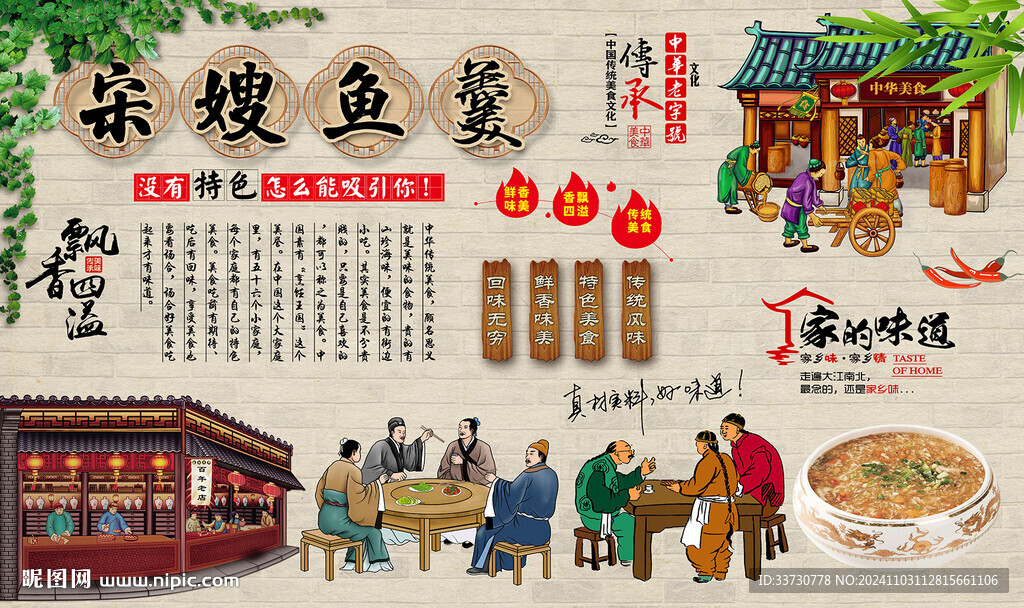 宋嫂鱼羹
没有特色怎么能吸引你！
飘香四溢
美味
传承
中华传统美食，顾名思义
就是美味的食物，贵的有
山珍海味，便宜的有街边
小吃。其实美食是不分贵
贱的，只要是自己喜欢的
，都可以称之为美食。中
国素有“烹饪王国”这个
美誉。在中国这个大家庭
里，有五十六个小家庭，
每个家庭都有自己的特色
美食。美食吃前有期待、
吃后有回味，享受美食也
要看场合，场合好美食吃
起来才有味道。
【中国传统美食文化】
傳承
中华
美食
中華老字號
文化
鲜香
味美
香飘
四溢
传统
美食
回味无穷
鲜香味美
特色美食
传统风味
真材实料，好味道！
中华美食
家的味道
家乡味·家乡情
TASTE
OF HOME
走遍大江南北，
最念的，还是家乡味...
百年老店
昵图网 www.nipic.com
ID:33730778 NO:20241103112815661106